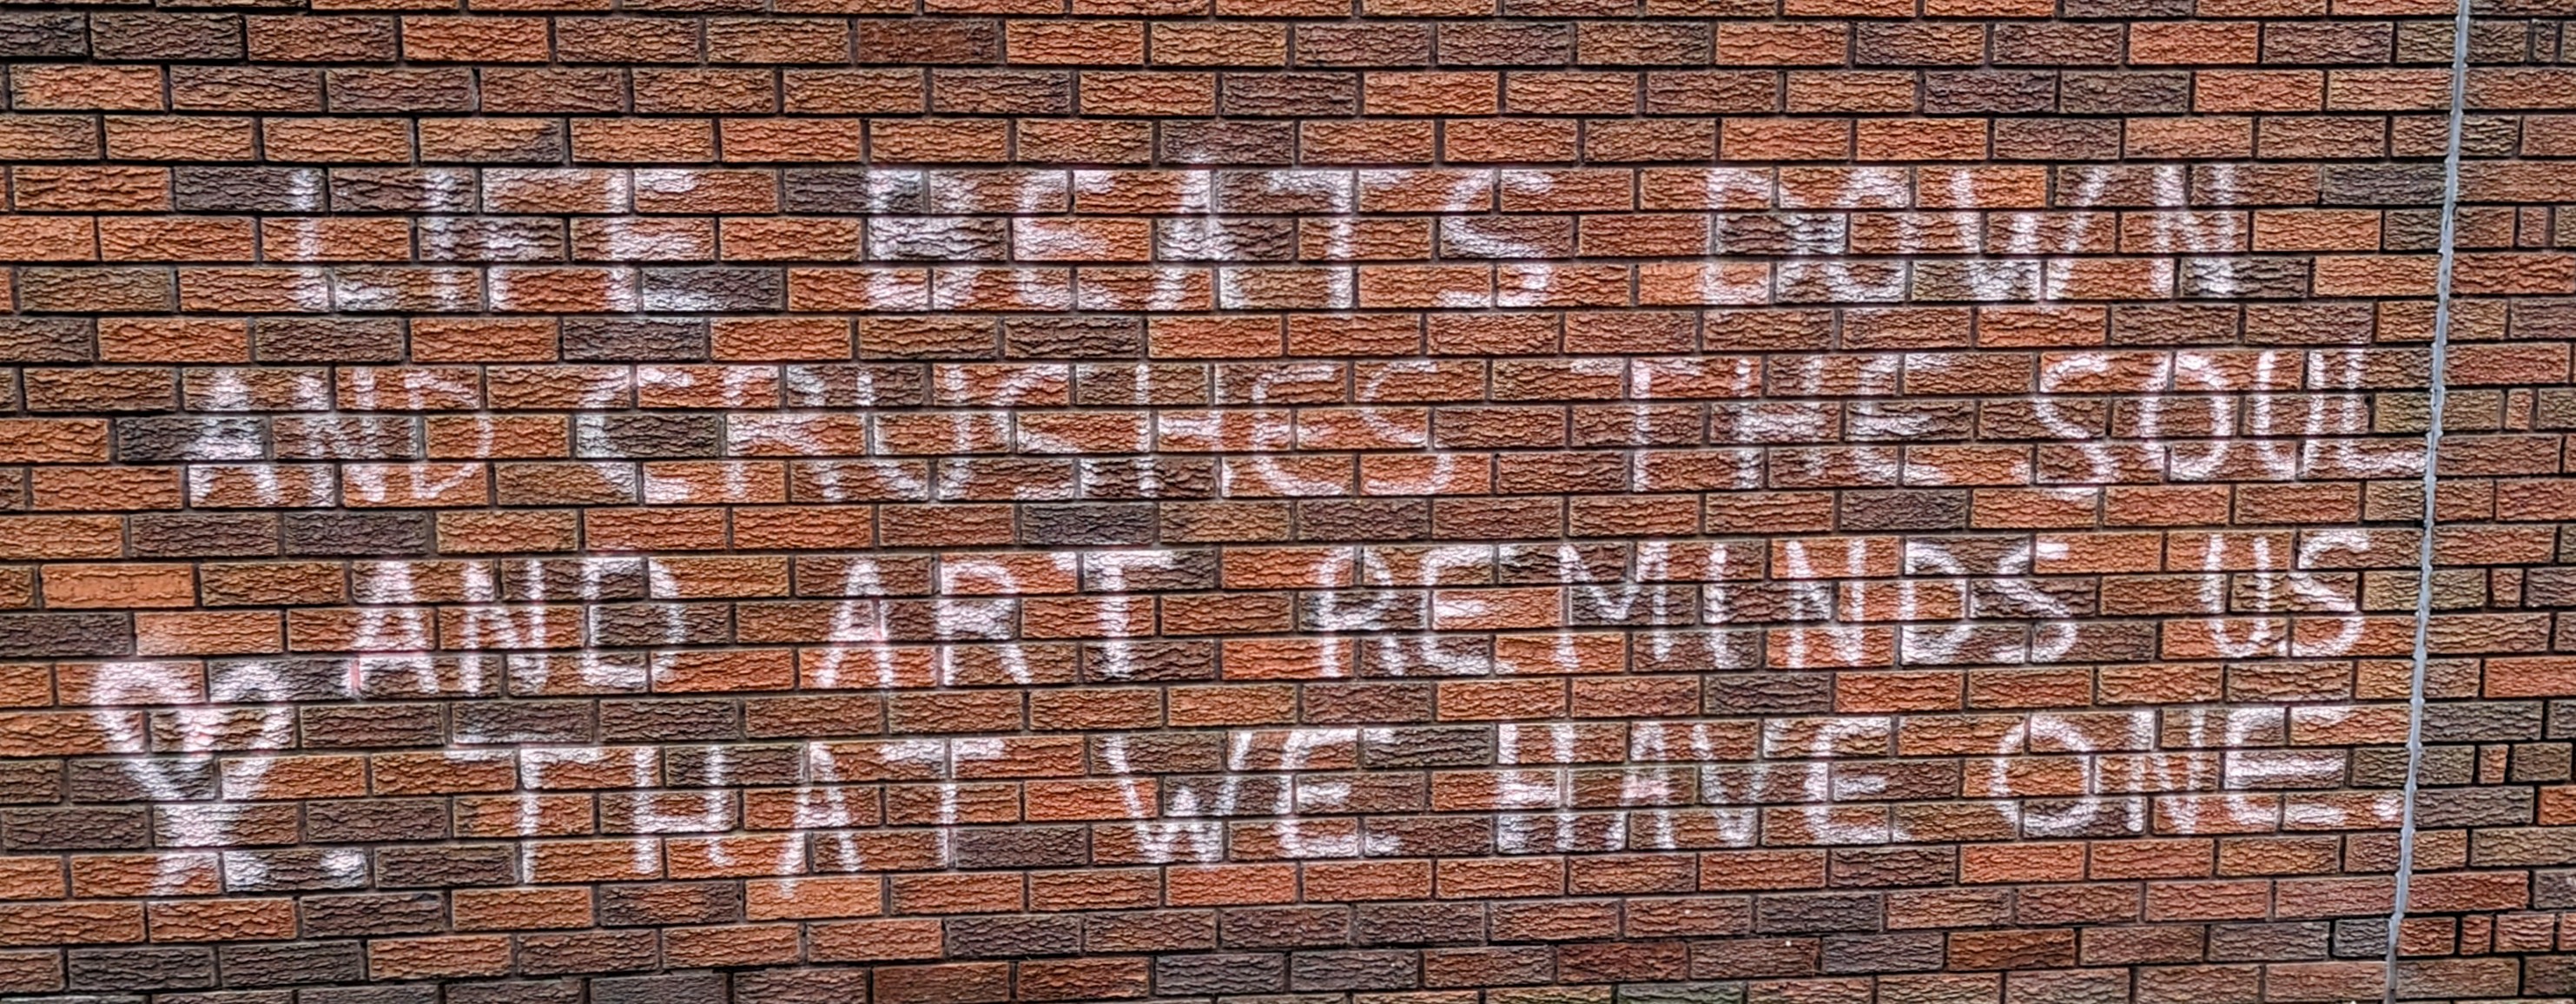 LIFE BEATS DOWN
AND CRUSHES THE SOUL
AND ART REMINDS US
THAT WE HAVE ONE.